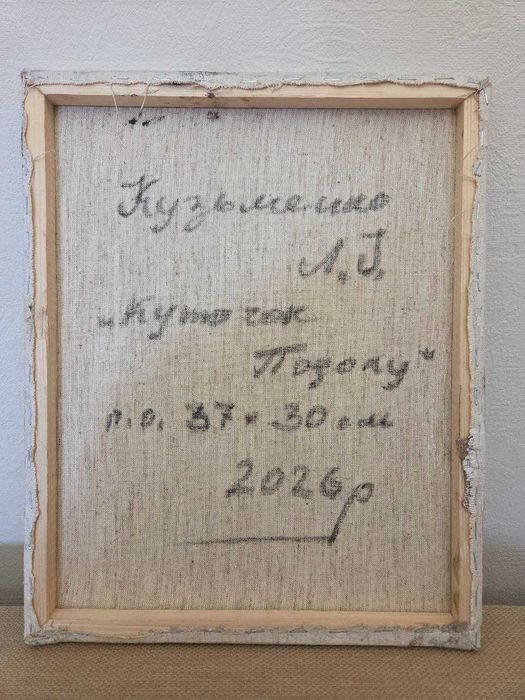 Кузьменко
Л. Г.
„Куточок
Подолу"
п.о. 37 × 30 см
2026р